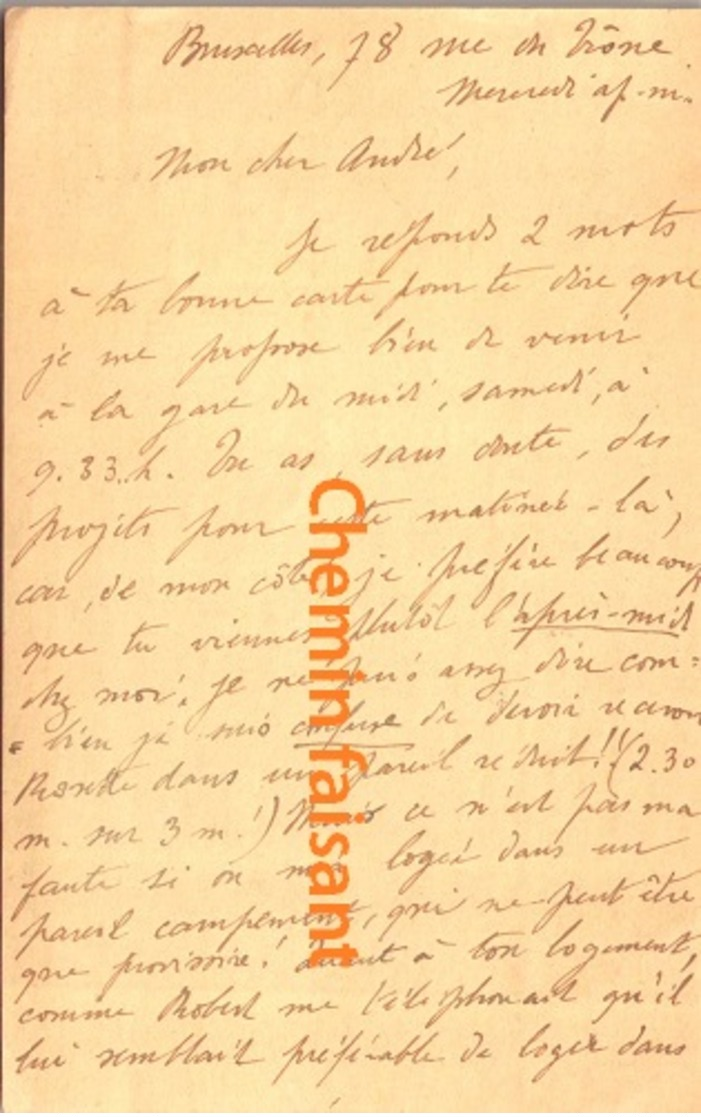 Bruxelles, 78 rue du Trône
Mercredi ap.-m.
Mon cher André,
Je réponds 2 mots
à ta bonne carte pour te dire que
je me propose bien de venir
à la gare du midi, samedi, à
9.33.h. Tu as, sans doute, des
projets pour cette matinée-là,
car, de mon côté, je préfère beaucoup
que tu viennes plutôt l'après-midi
chez moi. Je ne puis assez dire com=
=bien je suis confuse de devoir recevoir
Rosette dans un pareil réduit!! (2.30
m. sur 3 m.!) Mais ce n'est pas ma
faute si on m'a logée dans un
pareil campement, qui ne peut être
que provisoire! Quant à ton logement,
comme Robert me téléphonait qu'il
lui semblait préférable de loger dans
Chemin faisant